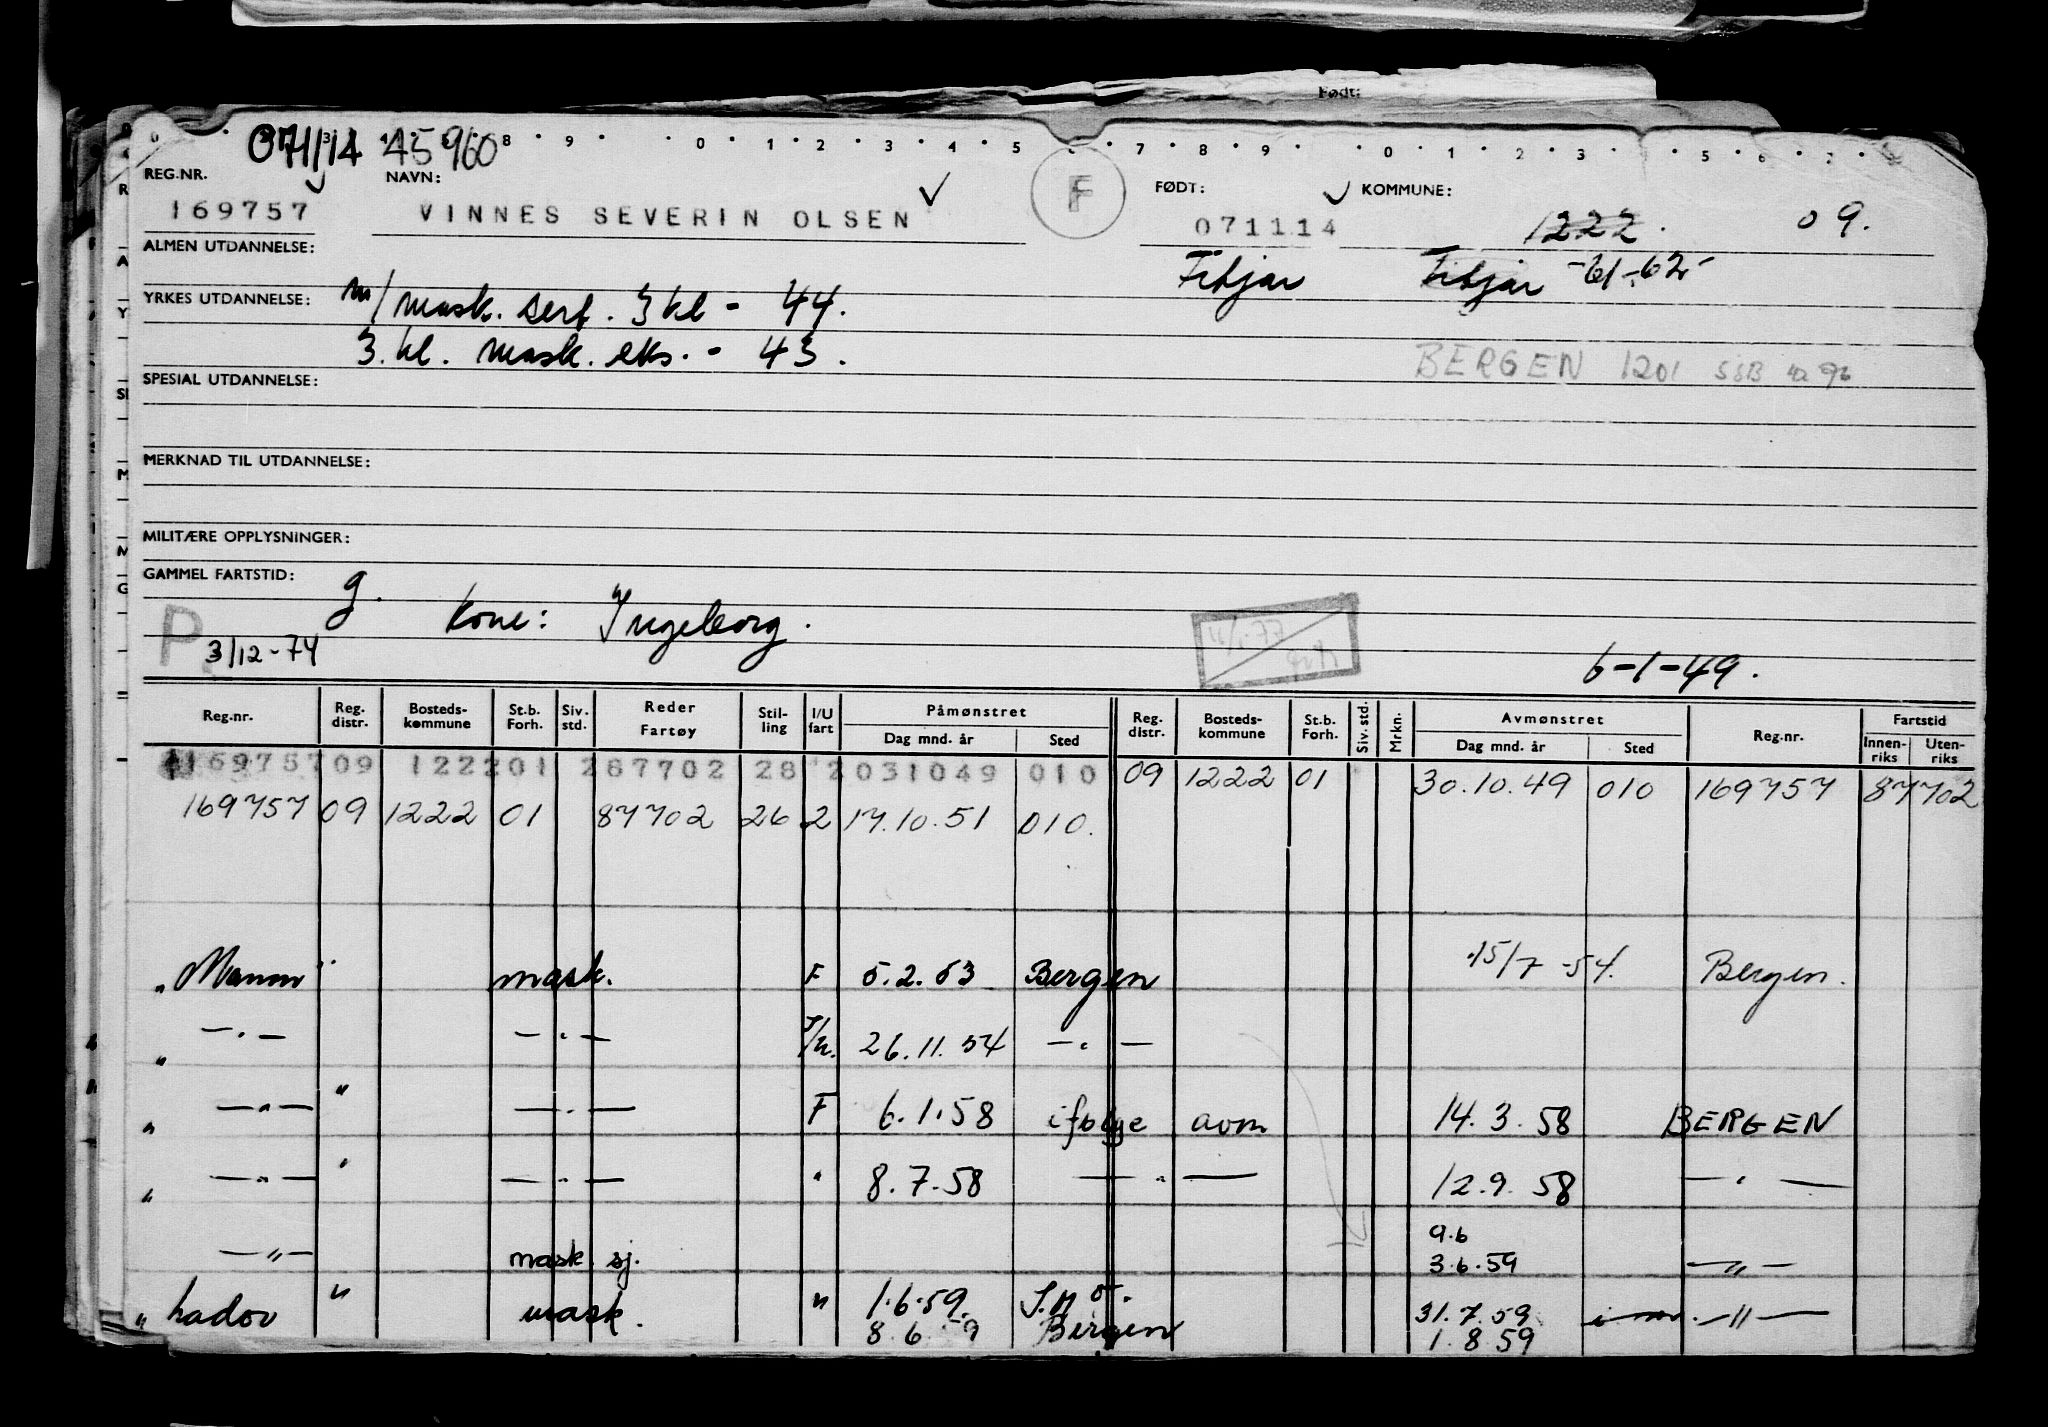 Født:
071114 45960
REG.NR. NAVN: FØDT: KOMMUNE:
169757 VINNES SEVERIN OLSEN F 071114 1222. 09.
ALMEN UTDANNELSE:
Fitjar Fitjar -61-62-
YRKES UTDANNELSE: m/mask. sert. 3 kl - 44.
3. kl. mask. eks. - 43.
BERGEN 1201
SPESIAL UTDANNELSE:
MERKNAD TIL UTDANNELSE:
MILITÆRE OPPLYSNINGER:
GAMMEL FARTSTID: g.
Kone: Ingeborg.
P. 3/12-74
6-1-49.
Reg.nr. Reg. distr. Bosteds-kommune St.b. Forh. Siv. std. Reder Fartøy Stil-ling I/U fart Påmønstret Dag mnd. år Sted Reg. distr. Bosteds-kommune St.b. Forh. Siv. std. Mrkn. Avmønstret Dag mnd. år Sted Reg.nr. Fartstid Innen-riks Uten-riks
169757 09 122201 287702 28 2 031049 010 09 1222 01 30.10.49 010 169757 87702
169757 09 1222 01 87702 26 2 17.10.51 010.
mask. F 5.2.53 Bergen 15/7-54. Bergen.
" —"— —"— 26.11.54 —"—
" —"— " —"— F 6.1.58 ifølge avm 14.3.58 BERGEN
" —"— " —"— " 8.7.58 —"— 12.9.58 —"—
9.6
—"— mask sj. 3.6.59 —"—
" " mask. " 1.6.59. 31.7.59 —"—
8 6 59 Bergen 1.8 59